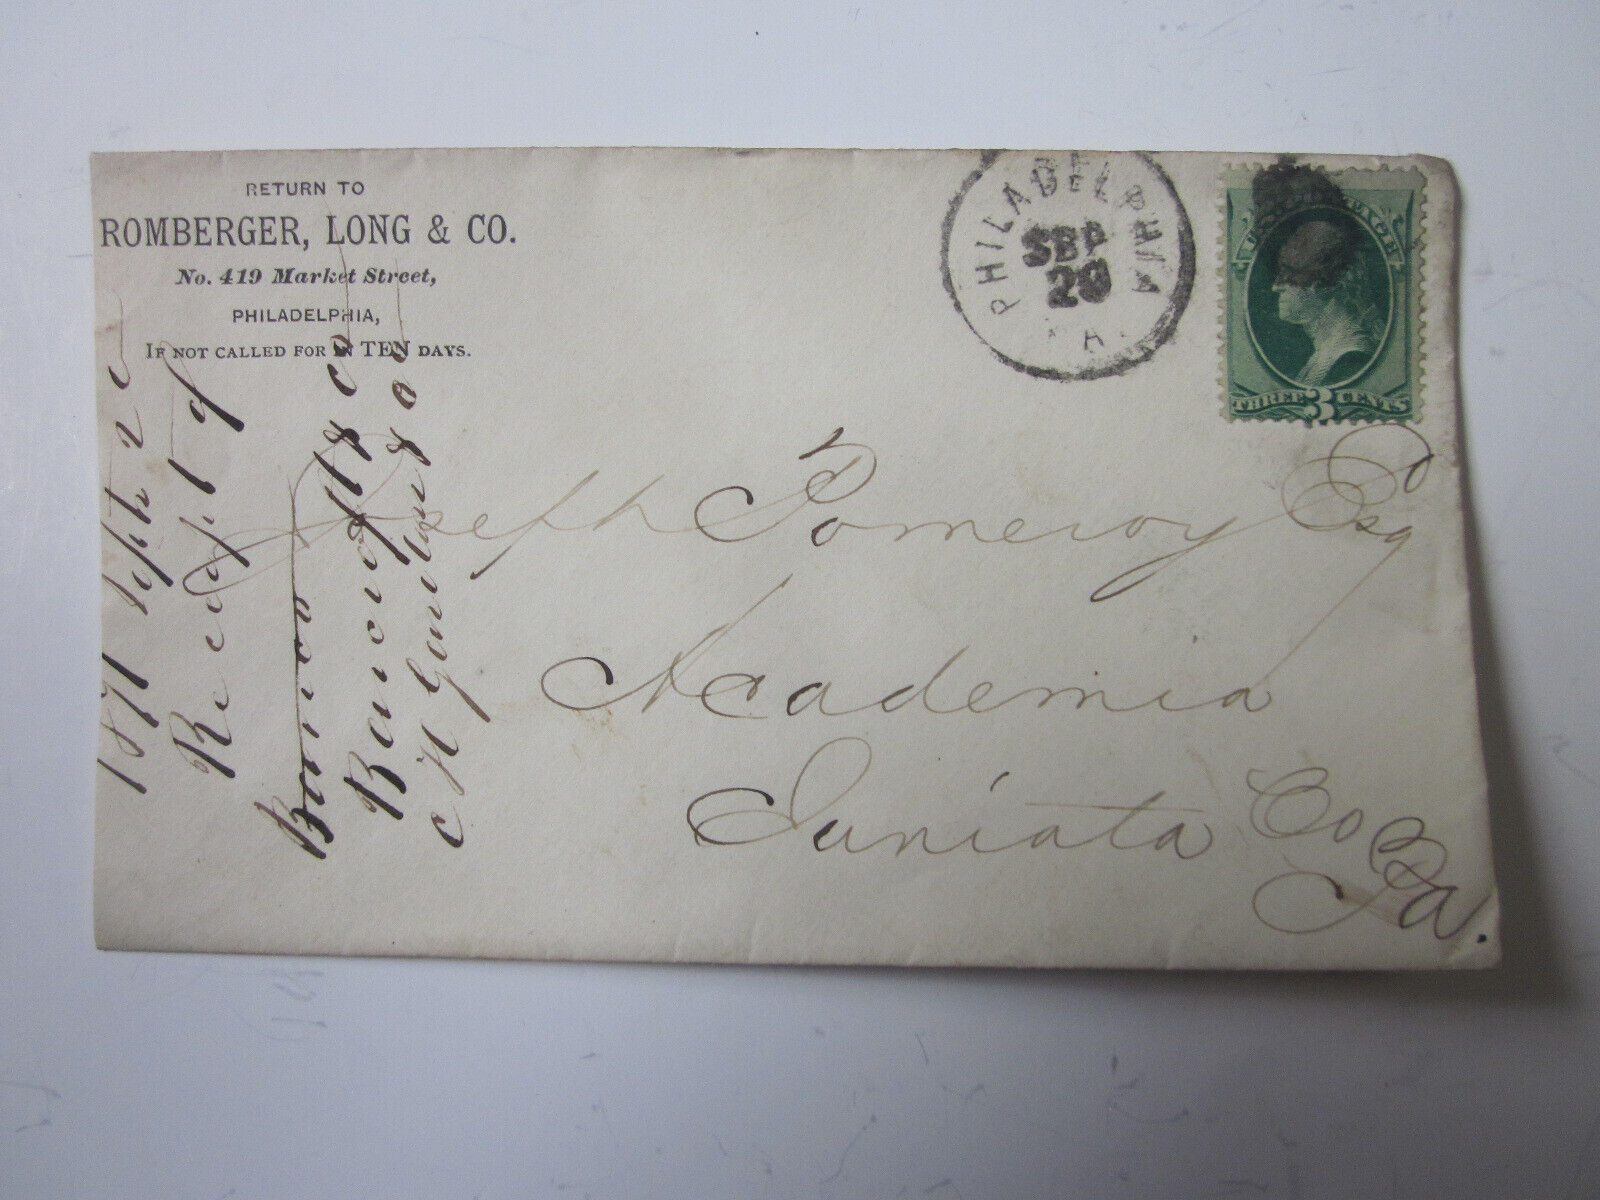 RETURN TO
ROMBERGER, LONG & CO.
No. 419 Market Street,
PHILADELPHIA,
IF NOT CALLED FOR IN TEN DAYS.
PHILADELPHIA
SEP
20
PA.
U.S. POSTAGE
THREE 3 CENTS
Joseph Pomeroy Esq
Academia
Juniata Co
Pa.
1871 Sept 20
Reciept of
Bancroft & Co